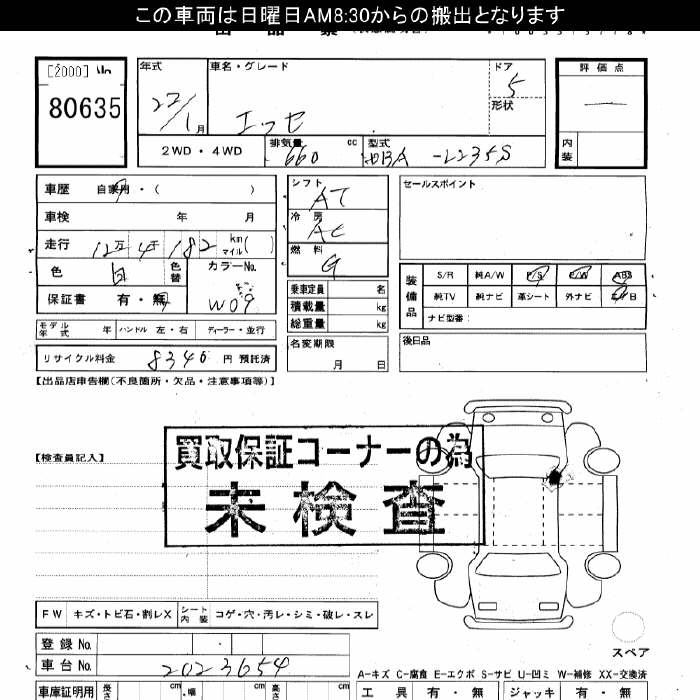 この車両は日曜日AM8:30からの搬出となります
[2000]
80635
年式
22/1月
車名・グレード
エッセ
ドア
5
形状
評価点
内装
2WD・4WD
排気量 660 cc
型式 -L235S
車歴 自家用・( )
車検 年 月
走行 12万4千182 km マイル( )
色 白 色替
カラーNo.
W09
保証書 有・無
モデル年式 年 ハンドル 左・右 ディーラー・並行
リサイクル料金 8340 円 預託済
シフト AT
冷房 AC
燃料 G
乗車定員 名
積載量 kg
総重量 kg
名変期限
月 日
セールスポイント
装備品
S/R 純A/W P/S P/W ABS
純TV 純ナビ 革シート 外ナビ エアB
ナビ型番:
後日品
【出品店申告欄(不良箇所・欠品・注意事項等)】
【検査員記入】
買取保証コーナーの為
未検査
FW キズ・トビ石・割レX シート内装 コゲ・穴・汚レ・シミ・破レ・スレ
登録No.
車台No. 2023654
スペア
A-キズ C-腐食 E-エクボ S-サビ U-凹ミ W-補修 XX-交換済
車庫証明用 長さ cm 幅 cm 高さ cm
工具 有・無 ジャッキ 有・無